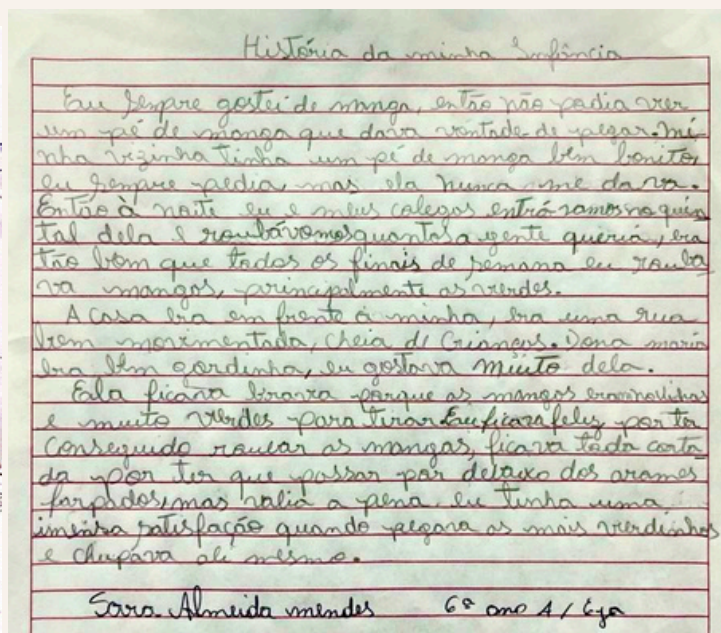 História da minha Infância
Eu sempre gostei de manga, então não podia ver
um pé de manga que dava vontade de pegar. mi
nha vizinha tinha um pé de manga bem bonito,
eu sempre pedia, mas ela nunca me dava.
Então à noite eu e meus colegas entrávamos no quin
tal dela e roubávamos quantas a gente queria, era
tão bom que todos os finais de semana eu rouba
va mangas, principalmente as verdes.
A casa era em frente à minha, era uma rua
bem movimentada, cheia de crianças. Dona maria
era bem gordinha, eu gostava muito dela.
Ela ficava brava porque as mangas eram novinhas
e muito verdes para tirar Eu ficava feliz por ter
conseguido roubar as mangas, ficava toda corta
da por ter que passar por debaixo dos arames
farpados, mas valia a pena, eu tinha uma
imensa satisfação quando pegava as mais verdinhas
e chupava ali mesmo.
Sara Almeida mendes 6º ano A / Eja